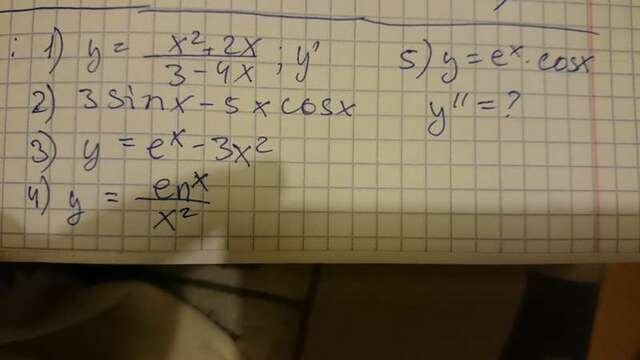 : 1) y = x²+2x / 3-4x ; y'
2) 3sinx - 5xcosx
3) y = eˣ - 3x²
4) y = enˣ / x²
5) y = eˣ · cosx
y'' = ?